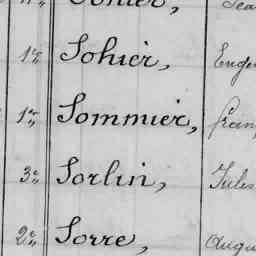 1er Sohier, Euge
1er Sommier, Fran
3e Sorlin, Jules
2e Sorre, Augu